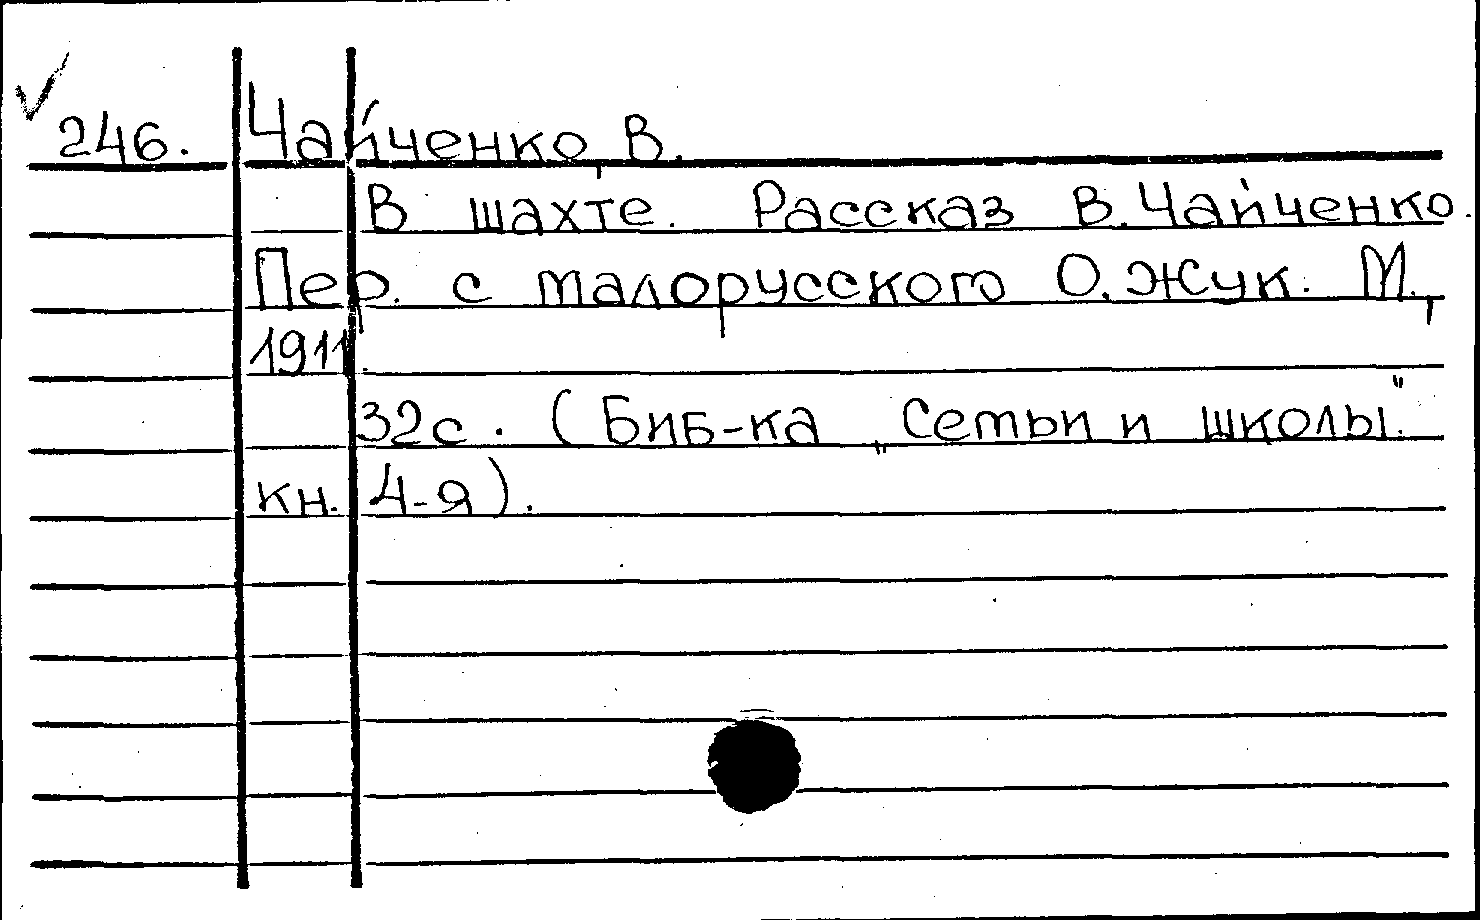 246. Чайченко, В.
В шахте. Рассказ В. Чайченко.
Пер. с малорусского О. Жук. М.,
1911.
32с. (Биб-ка „Семьи и школы".
кн. 4-я).